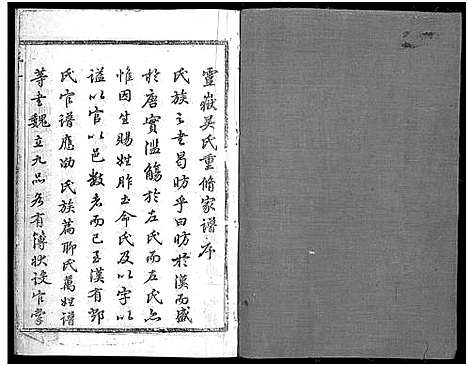 靈嶽吳氏重修家譜序
氏族之書曷昉乎曰昉於漢而盛
於唐實濫觴於左氏而左氏亦
惟因生賜姓胙土命氏及以字以
謚以官以邑數者而已至漢有鄧
氏官譜應劭氏族篇聊氏萬姓譜
等書魏立九品各有簿狀設官掌